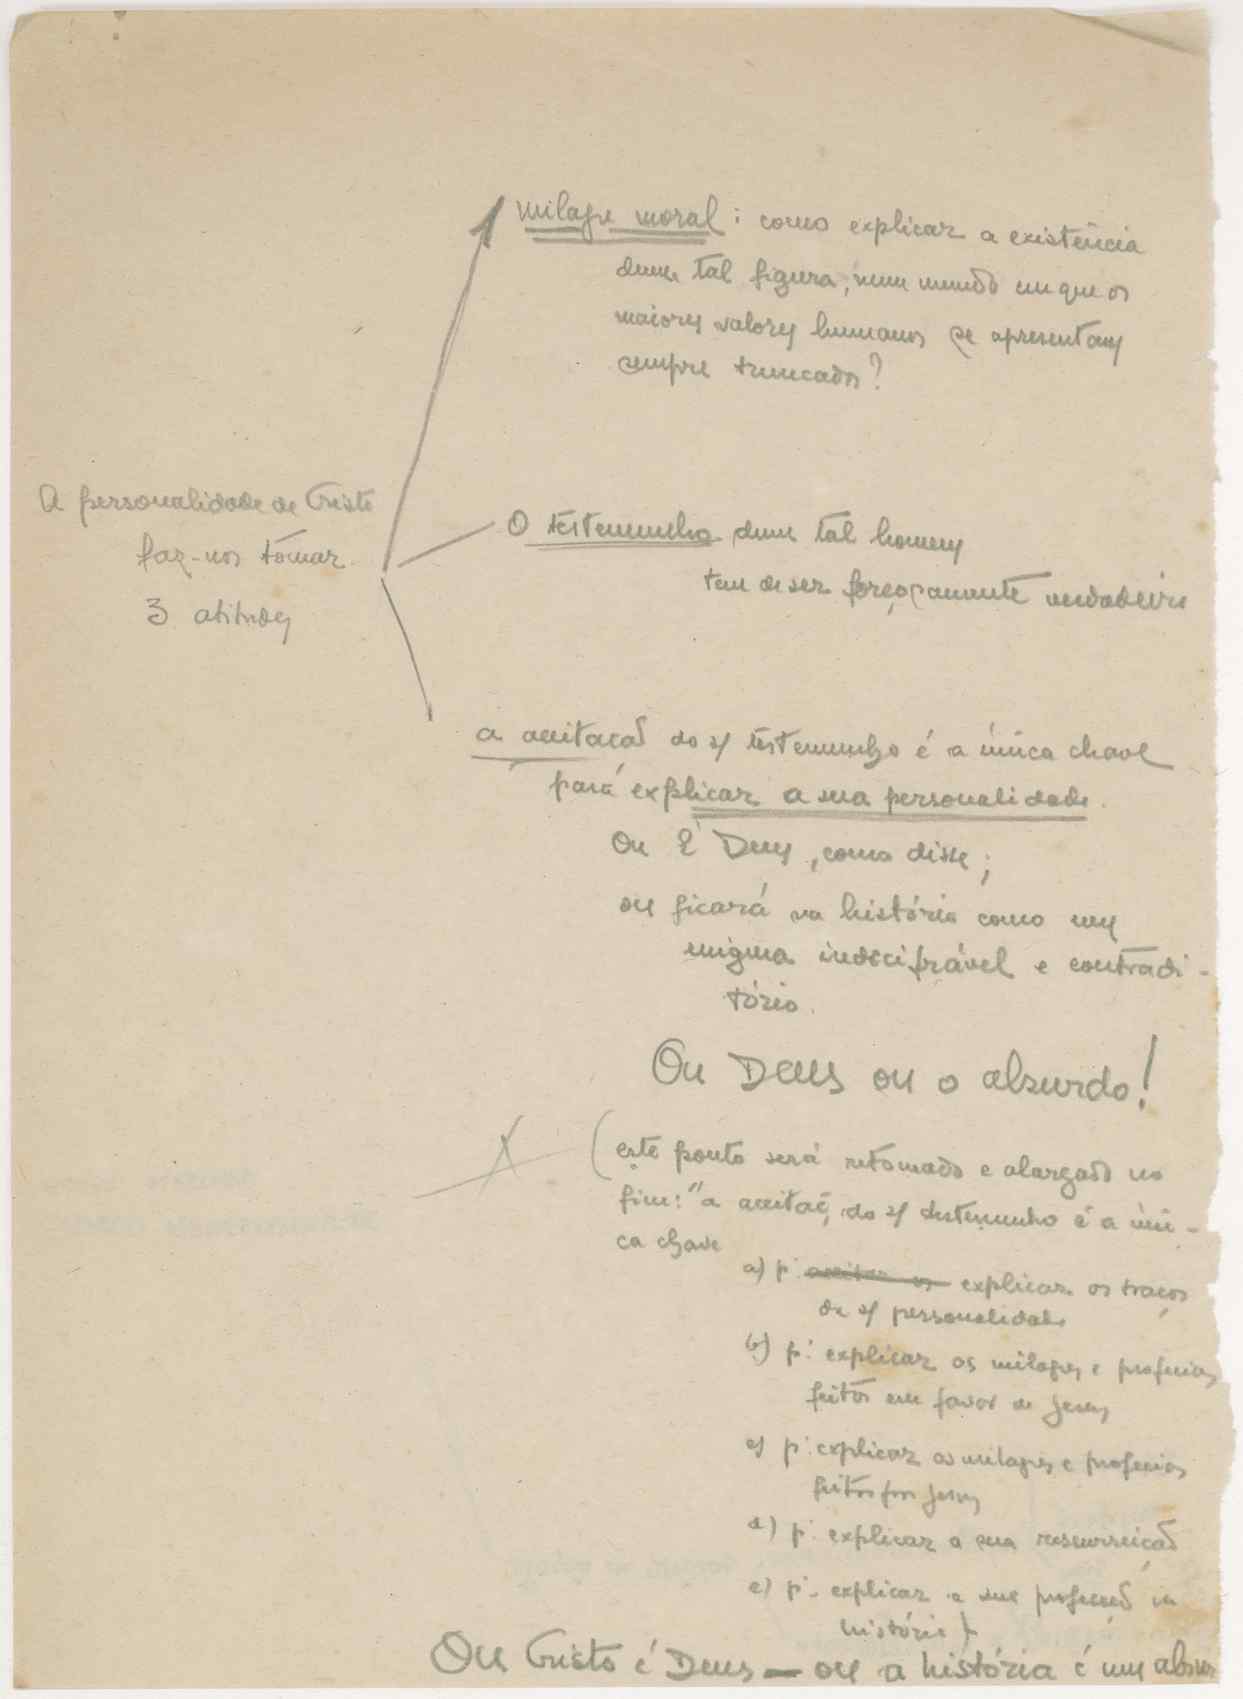 milagre moral : como explicar a existência
duma tal figura, num mundo em que os
maiores valores humanos se apresentam
sempre truncados?
A personalidade de Cristo
faz-nos tomar
3 atitudes
O testemunho dum tal homem
tem de ser forçosamente verdadeiro
a aceitação do s/ testemunho é a única chave
para explicar a sua personalidade.
Ou É Deus, como disse;
ou ficará na história como um
enigma indecifrável e contradi-
tório.
Ou Deus ou o absurdo!
(este ponto será retomado e alargado no
fim: "a aceitaç. do s/ testemunho é a úni-
ca chave
a) p. explicar os traços
da s/ personalidade
b) p. explicar os milagres e profecias
feitos em favor de Jesus
c) p. explicar os milagres e profecias
feitos por Jesus
d) p. explicar a sua ressurreição
e) p. explicar a sua na
história)
Ou Cristo é Deus — ou a história é um